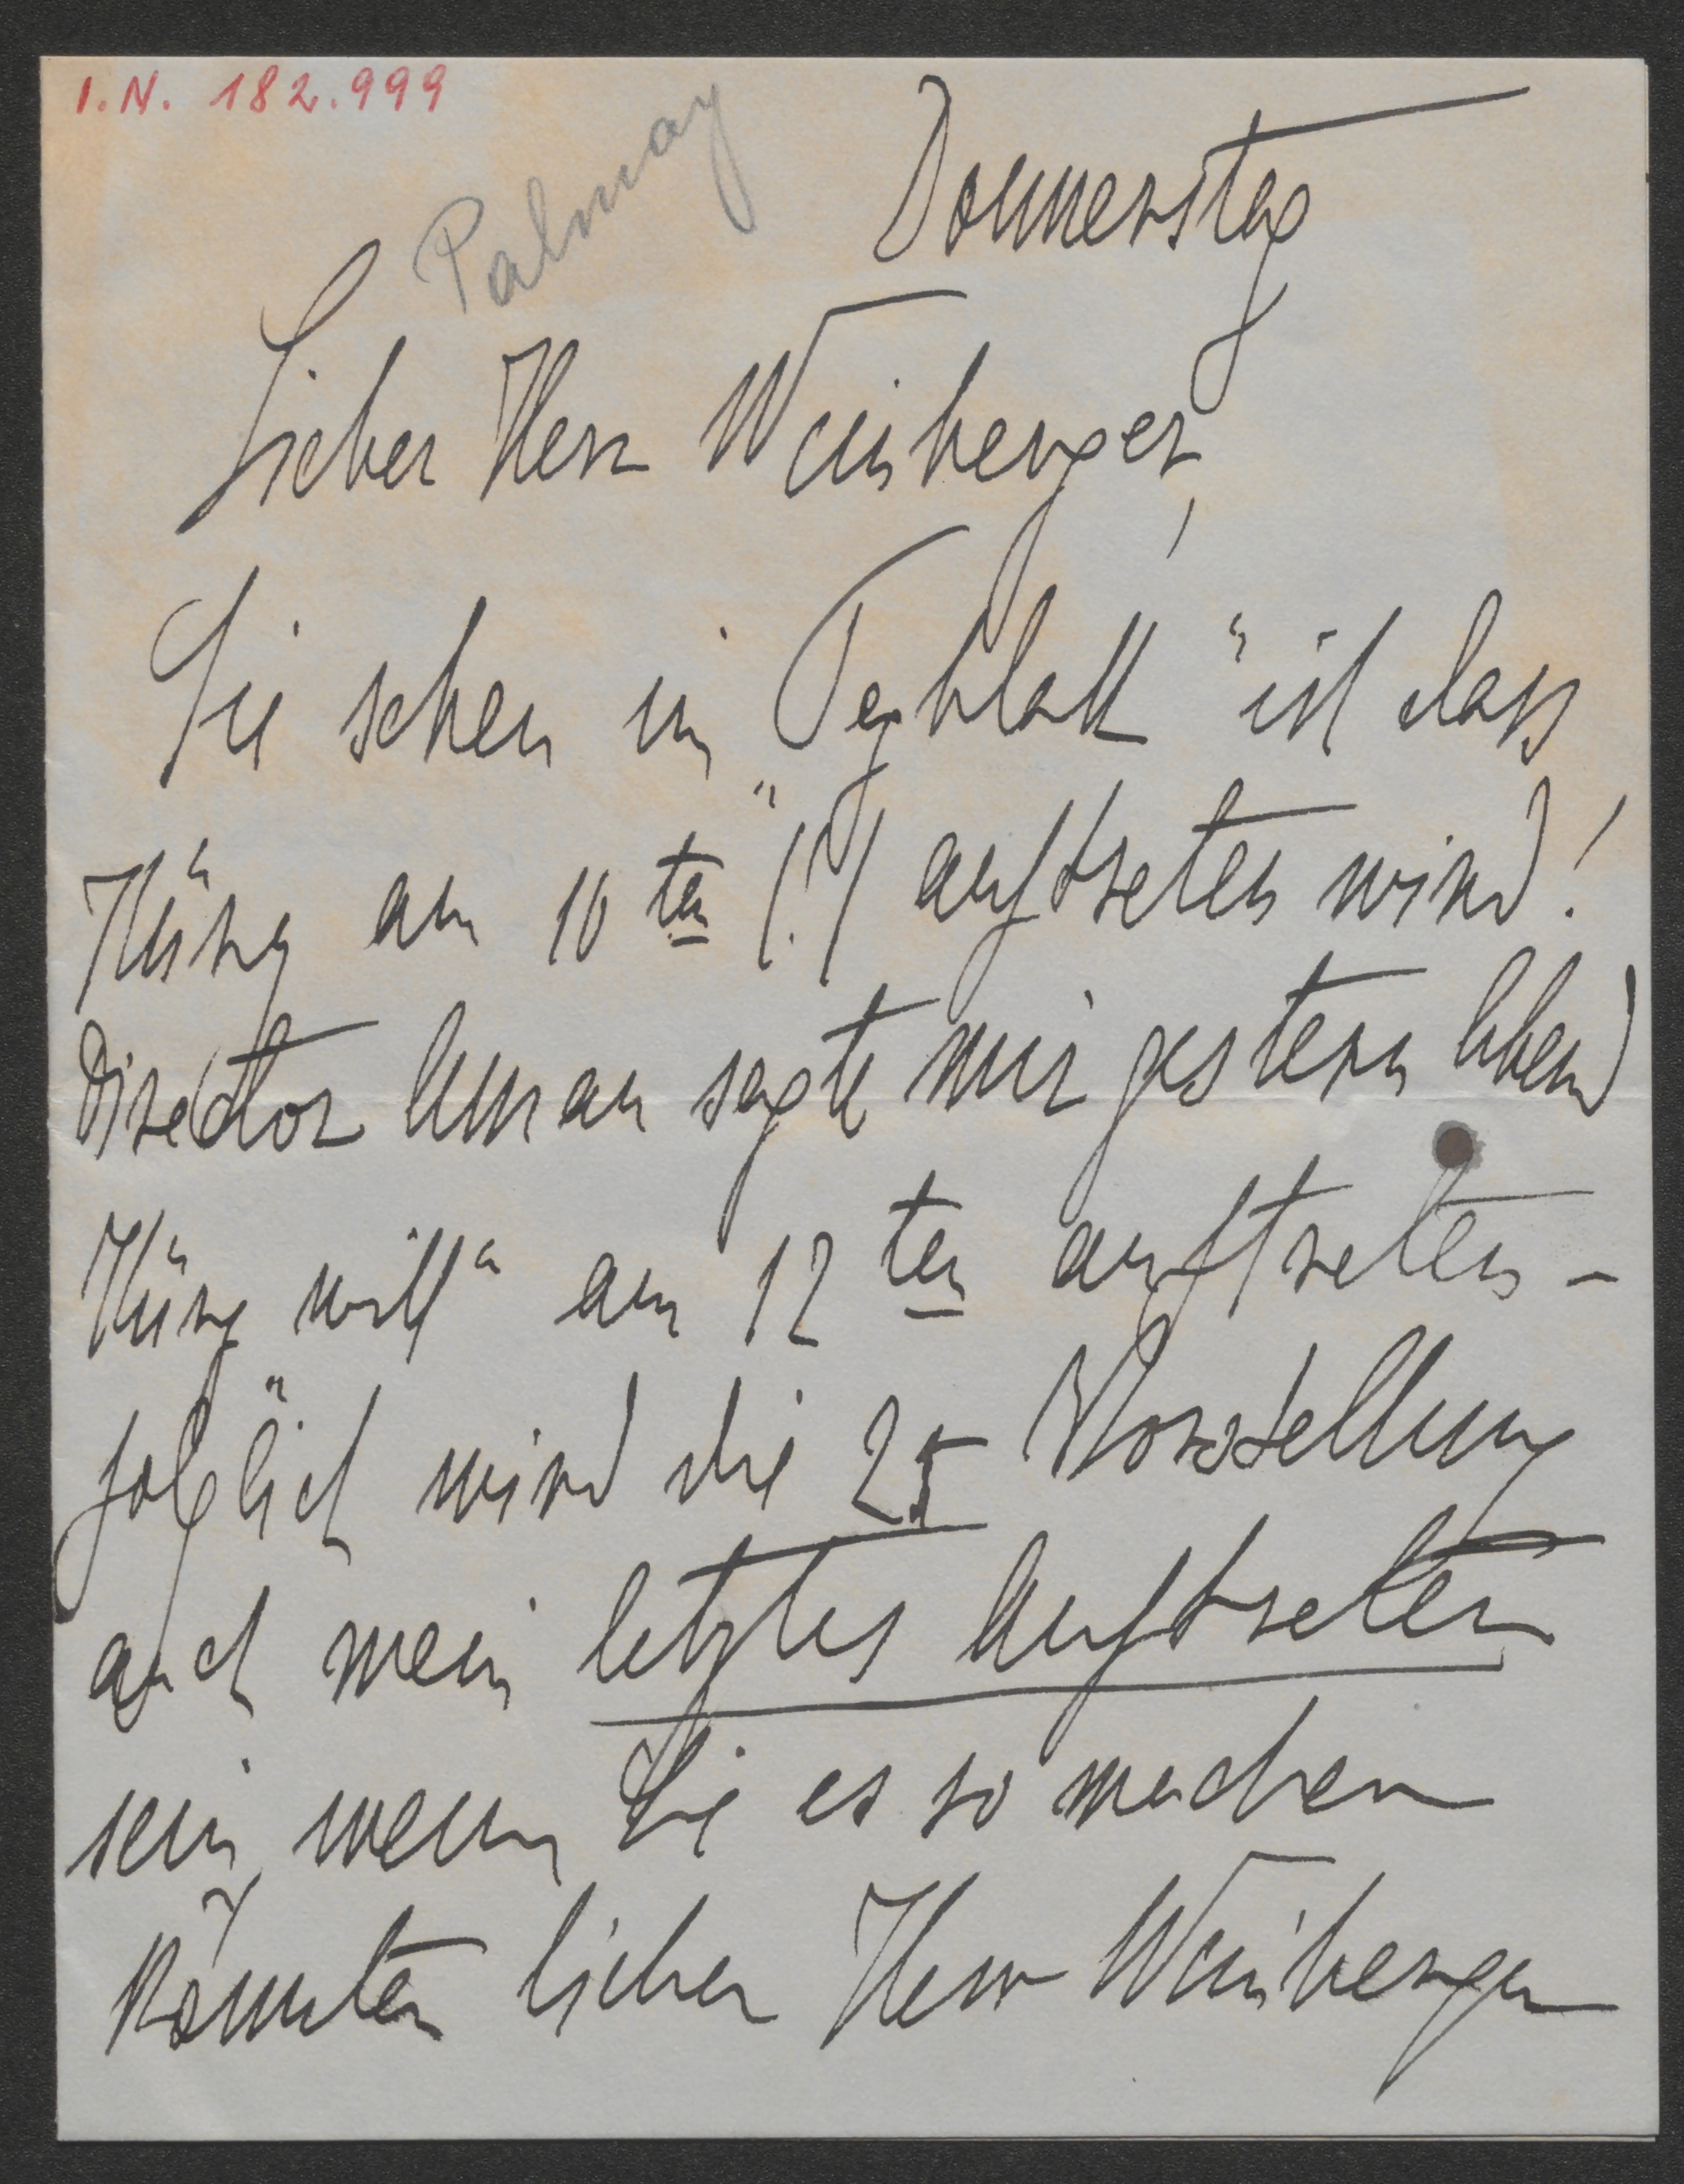 I.N. 182.999
Palmay
Donnerstag
Lieber Herr Weinberger,
Sie sehen im „Tagblatt“ ist dass
Küry am 10ten (!) auftreten wird!
Director Aman sagte mir gestern Abend
Küry „will“ am 12ten auftreten –
folglich wird die 25 Vorstellung
auch mein letztes Auftreten
sein, wenn Sie es so machen
könnten lieber Herr Weinberger